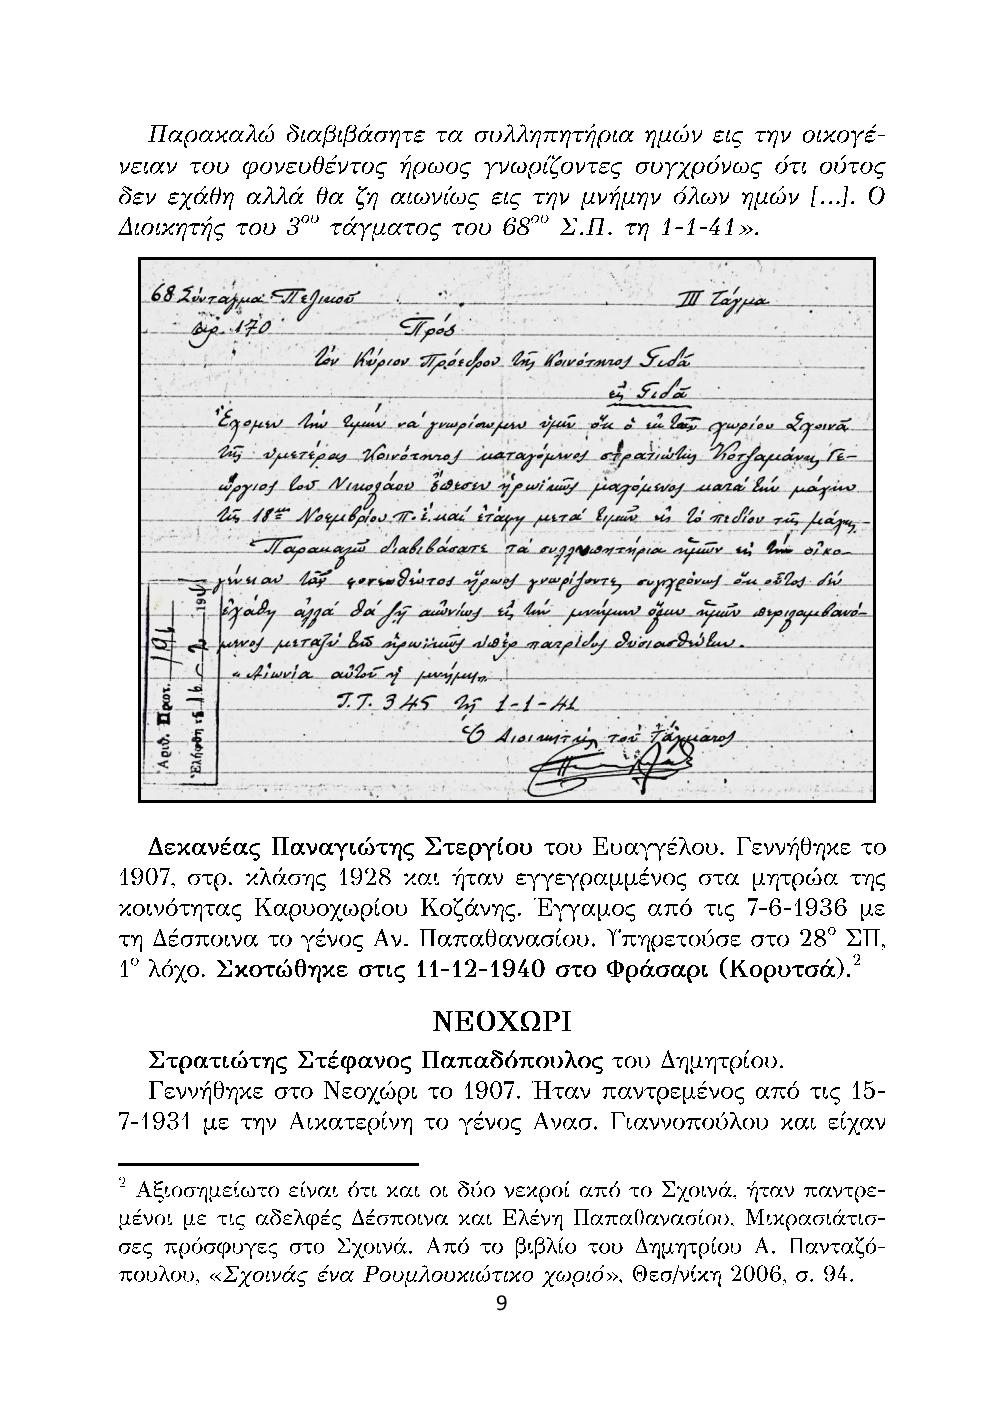 Παρακαλώ διαβιβάσητε τα συλληπητήρια ημών εις την οικογέ-
νειαν του φονευθέντος ήρωος γνωρίζοντες συγχρόνως ότι ούτος
δεν εχάθη αλλά θα ζη αιωνίως εις την μνήμην όλων ημών [...]. Ο
Διοικητής του 3ου τάγματος του 68ου Σ.Π. τη 1-1-41».
68 Σύνταγμα Πεζικού ΙΙΙ Τάγμα
αρ. 170 Πρός
Τόν Κύριον Πρόεδρον τής Κοινότητος Γιδά
εἰς Γιδά
Ἔχομεν τήν τιμήν νά γνωρίσωμεν ὑμῖν ὅτι ὁ ἐκ τοῦ χωρίου Σχοινᾶ
τῆς ὑμετέρας Κοινότητος καταγόμενος στρατιώτης Κοτζαμάνης Γε-
ώργιος τοῦ Νικολάου ἔπεσεν ἡρωϊκῶς μαχόμενος κατά τήν μάχην
τῆς 18ης Νοεμβρίου π.ἔ. καί ἐτάφη μετά τιμῶν εἰς τό πεδίον τῆς μάχης.
Παρακαλῶ διαβιβάσατε τά συλλυπητήρια ἡμῶν εἰς τήν οἰκο-
γένειαν τοῦ φονευθέντος ἥρωος γνωρίζοντες συγχρόνως ὅτι οὗτος δέν
ἐχάθη ἀλλά θά ζῇ αἰωνίως εἰς τήν μνήμην ὅλων ἡμῶν περιλαμβανό-
μενος μεταξύ τῶν ἡρωϊκῶς ὑπέρ πατρίδος θυσιασθέντων.
«Αἰωνία αὐτοῦ ἡ μνήμη».
Τ.Τ. 345 τῇ 1-1-41
Ὁ Διοικητής τοῦ Τάγματος
Ἀριθ. Πρωτ. 191
Ἐλήφθη τῇ 16-2-1941
Δεκανέας Παναγιώτης Στεργίου του Ευαγγέλου. Γεννήθηκε το
1907, στρ. κλάσης 1928 και ήταν εγγεγραμμένος στα μητρώα της
κοινότητας Καρυοχωρίου Κοζάνης. Έγγαμος από τις 7-6-1936 με
τη Δέσποινα το γένος Αν. Παπαθανασίου. Υπηρετούσε στο 28ο ΣΠ,
1ο λόχο. Σκοτώθηκε στις 11-12-1940 στο Φράσαρι (Κορυτσά).2
ΝΕΟΧΩΡΙ
Στρατιώτης Στέφανος Παπαδόπουλος του Δημητρίου.
Γεννήθηκε στο Νεοχώρι το 1907. Ήταν παντρεμένος από τις 15-
7-1931 με την Αικατερίνη το γένος Ανασ. Γιαννοπούλου και είχαν
2 Αξιοσημείωτο είναι ότι και οι δύο νεκροί από το Σχοινά, ήταν παντρε-
μένοι με τις αδελφές Δέσποινα και Ελένη Παπαθανασίου, Μικρασιάτισ-
σες πρόσφυγες στο Σχοινά. Από το βιβλίο του Δημητρίου Α. Πανταζό-
πουλου, «Σχοινάς ένα Ρουμλουκιώτικο χωριό», Θεσ/νίκη 2006, σ. 94.
9